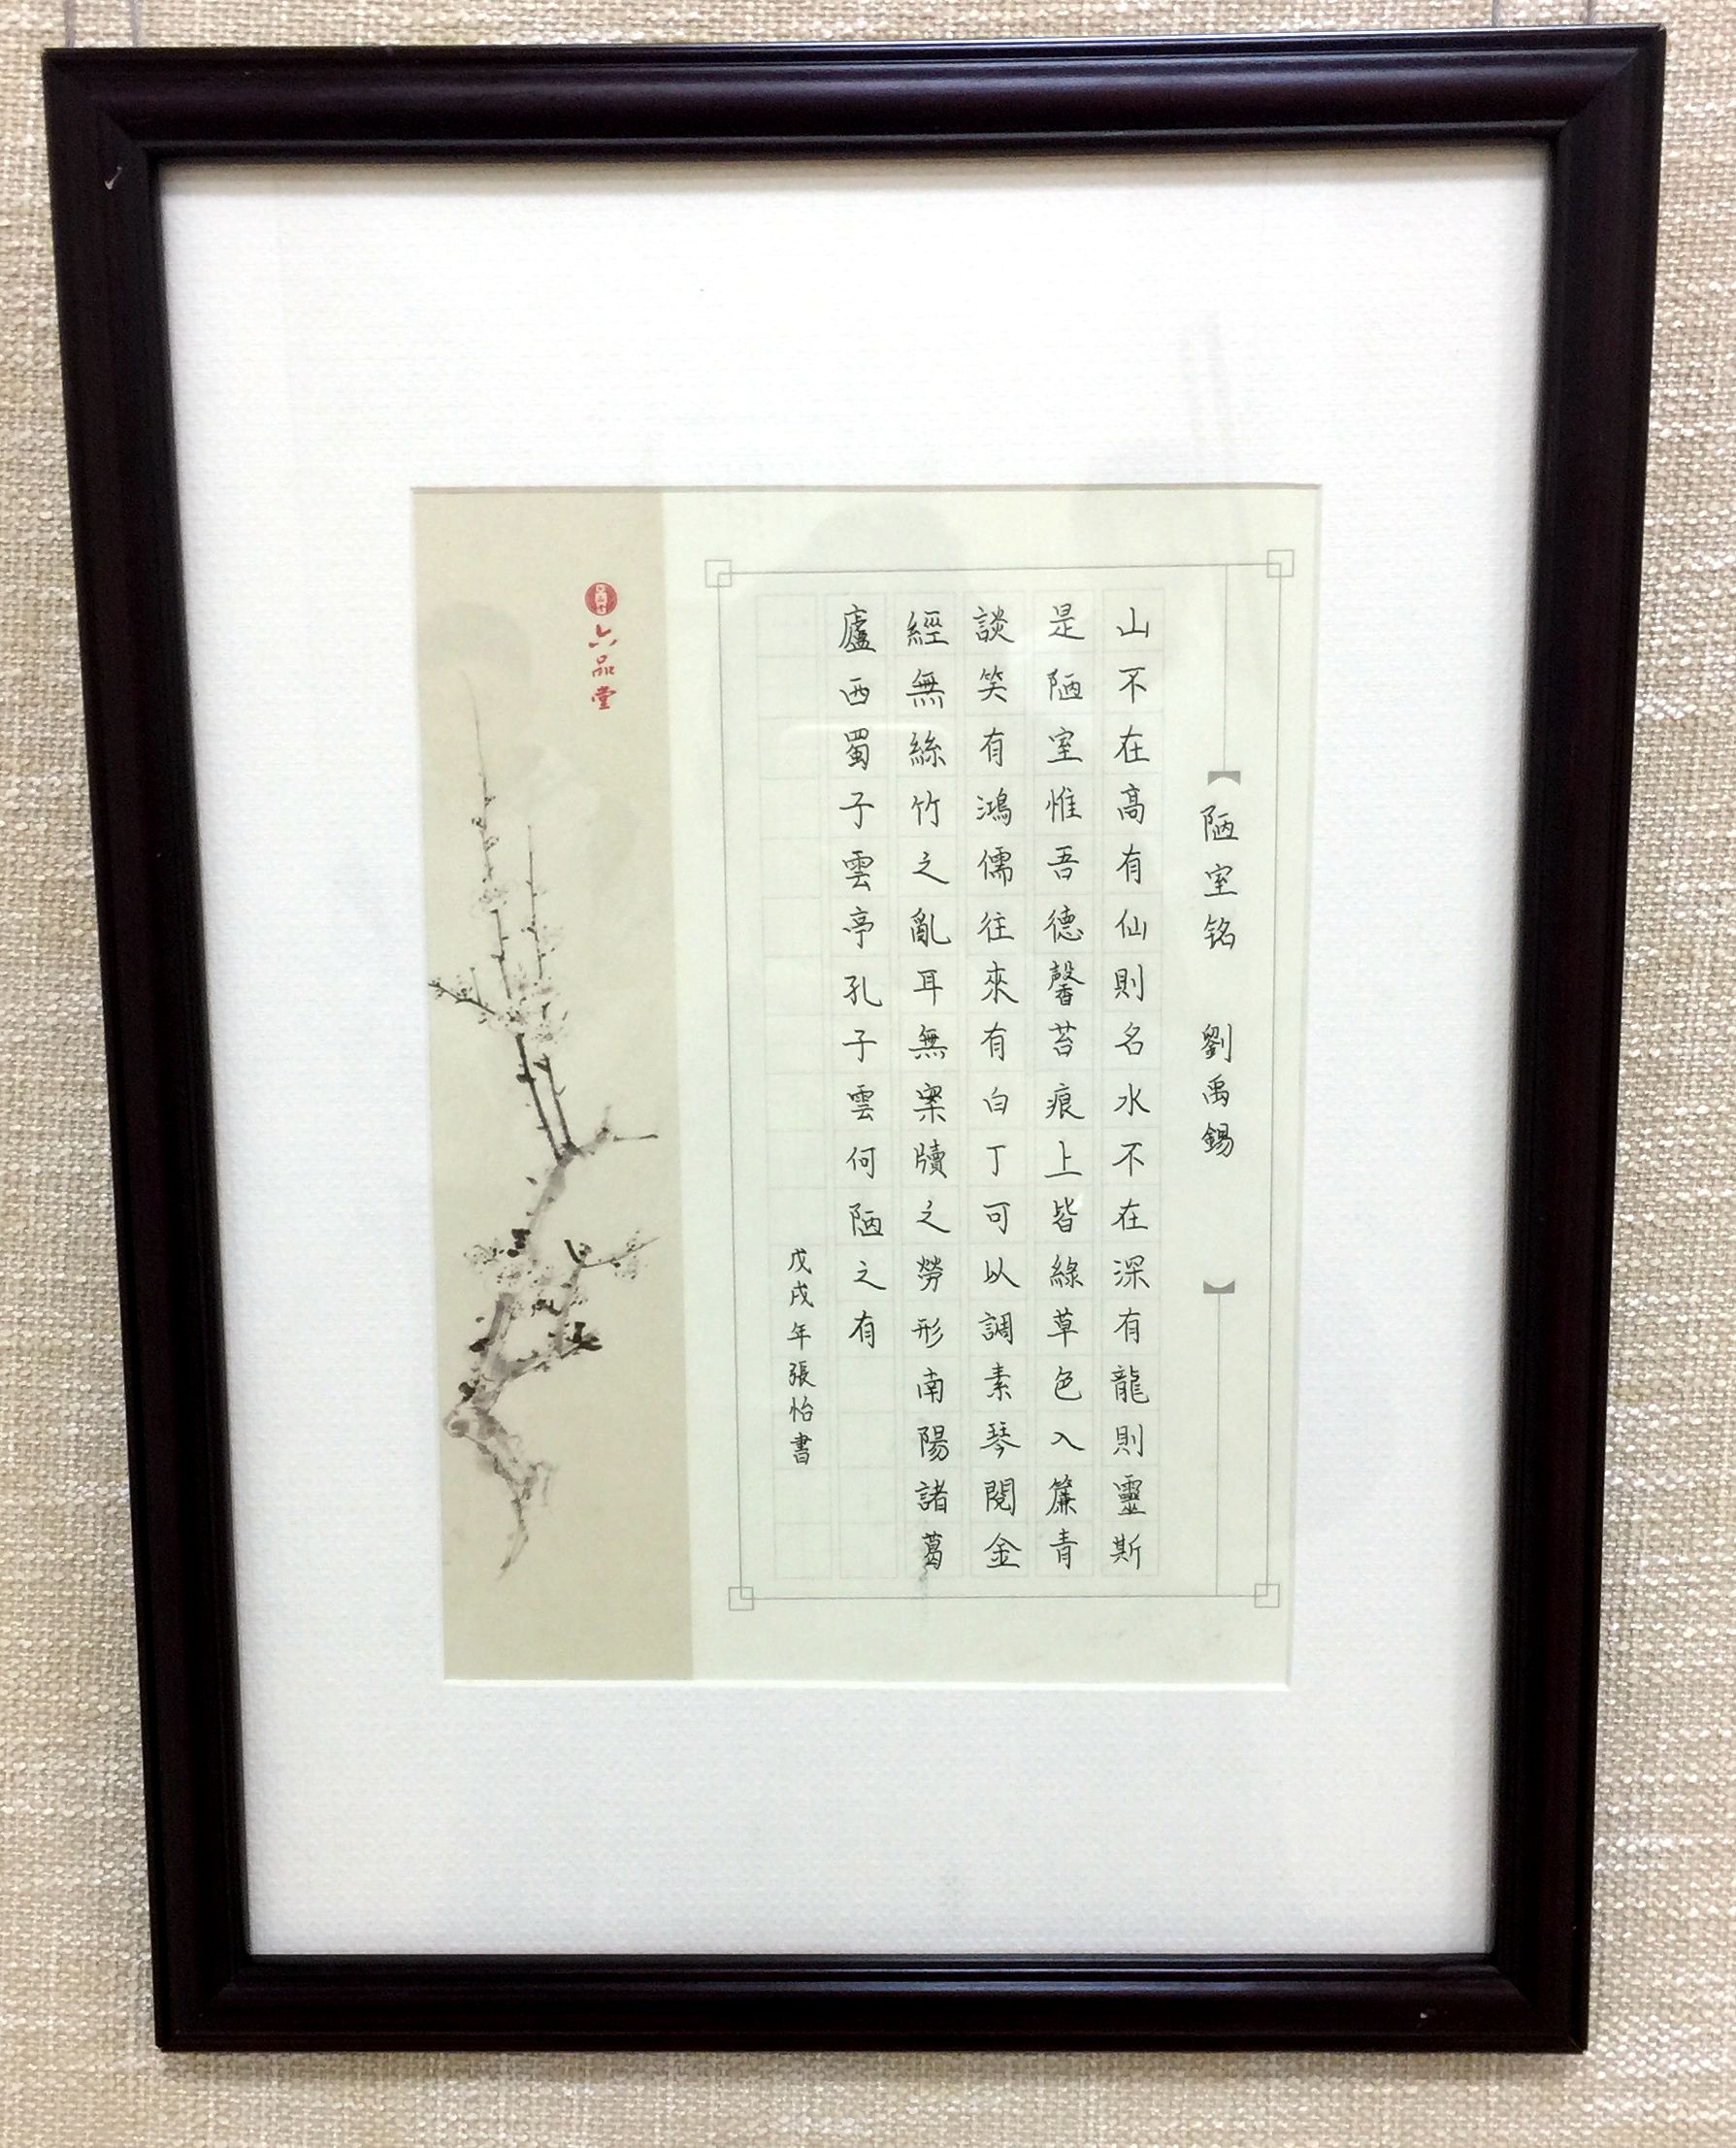 陋室铭 劉禹錫
山不在高有仙則名水不在深有龍則靈斯
是陋室惟吾德馨苔痕上皆綠草色入簾青
談笑有鴻儒往來有白丁可以調素琴閱金
經無絲竹之亂耳無案牘之勞形南陽諸葛
廬西蜀子雲亭孔子雲何陋之有
戊戌年張怡書
六品堂